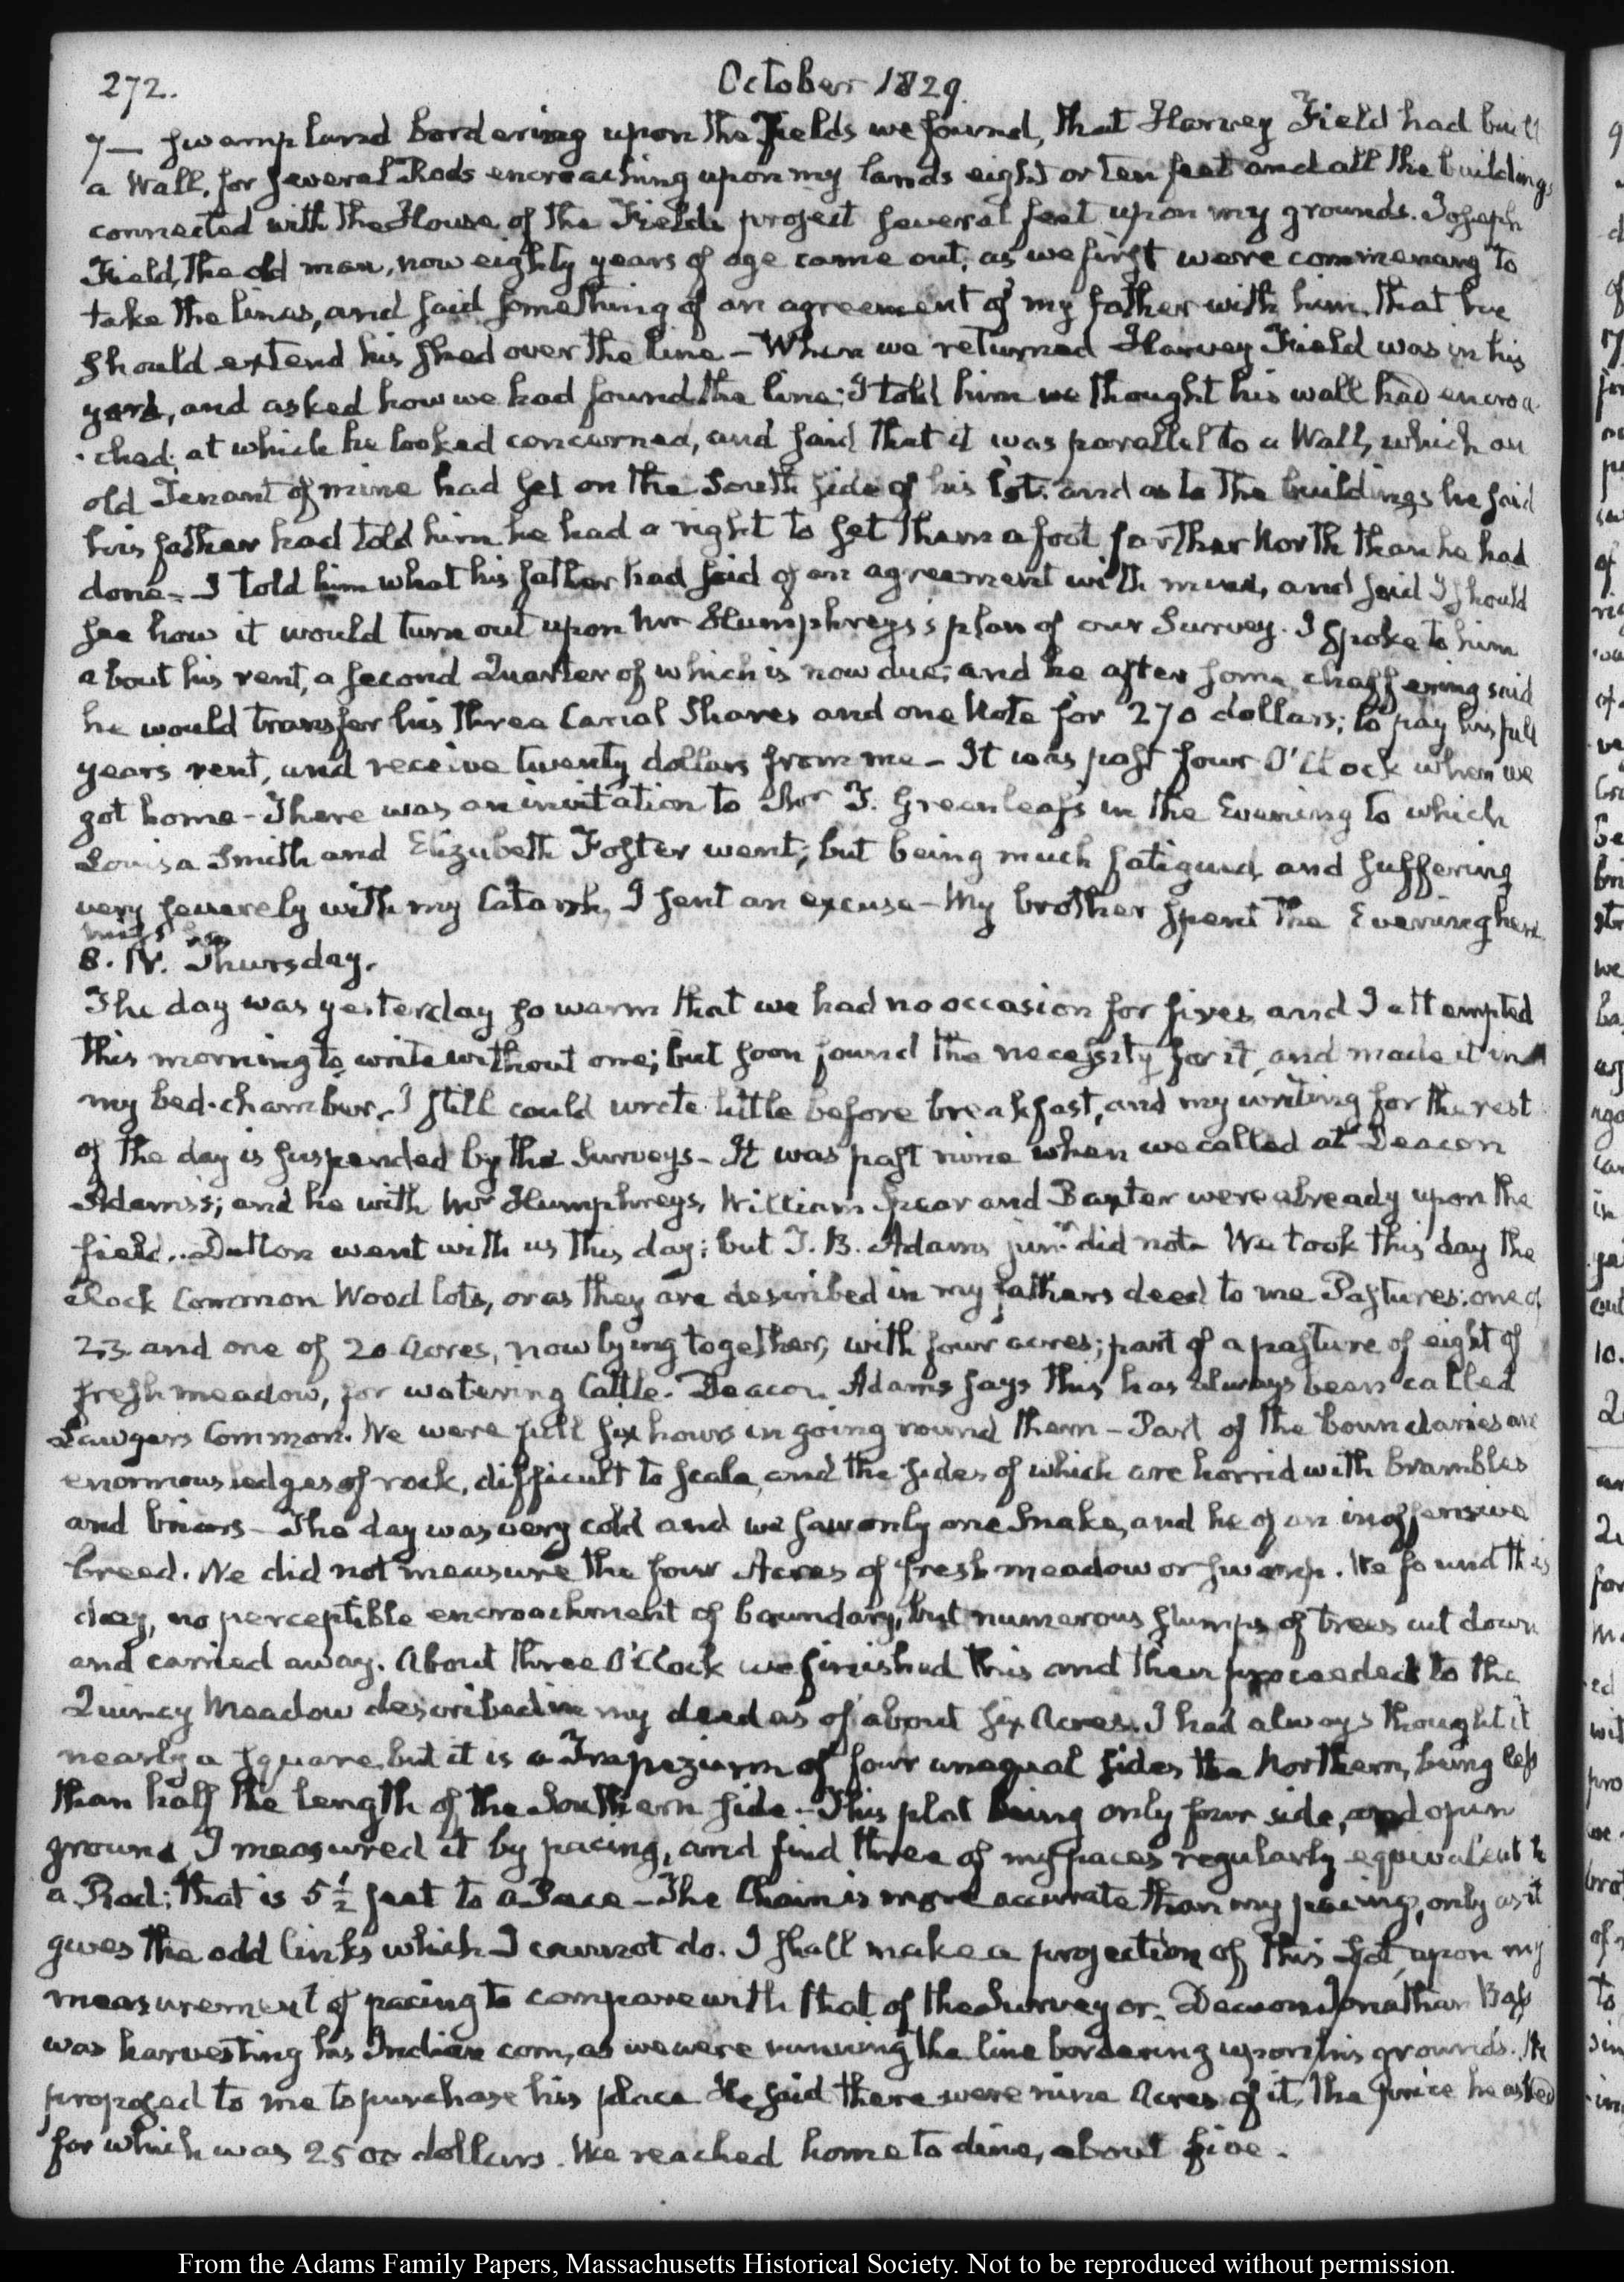 272.
October 1829.
7 — swamp land bordering upon the Fields we found, that Harvey Field had built
a Wall, for several Rods encroaching upon my lands eight or ten feet and all the buildings
connected with the House of the Fields project several feet upon my grounds. Joseph
Field, the old man, now eighty years of age came out, as we first were commencing to
take the lines, and said something of an agreement of my father with him, that he
should extend his shed over the line — When we returned Harvey Field was in his
yard, and asked how we had found the line; I told him we thought his wall had encroa
-ched; at which he looked concerned, and said that it was parallel to a Wall, which an
old Tenant of mine had set on the South side of his lot: and as to the buildings he said
his father had told him he had a right to set them a foot farther North than he had
done — I told him what his father had said of an agreement with mine, and said I should
see how it would turn out upon Mr Humphreys's plan of our Survey. I spoke to him
about his rent, a second Quarter of which is now due; and he after some chaffering said
he would transfer his three Canal Shares and one Note for 270 dollars; to pay his full
years rent, and receive twenty dollars from me — It was past four O'Clock when we
got home — There was an invitation to Mr T. Greenleaf's in the Evening to which
Louisa Smith and Elizabeth Foster went; but being much fatigued, and suffering
very severely with my Catarrh, I sent an excuse — My brother spent the Evening here.
8. IV. Thursday.
The day was yesterday so warm that we had no occasion for fires, and I attempted
this morning to write without one; but soon found the necessity for it, and made it in
my bed-chamber. I still could write little before breakfast, and my writing for the rest
of the day is suspended by the Surveys — It was past nine when we called at Deacon
Adams's; and he with Mr Humphreys, William Spear and Baxter were already upon the
field.. Dutton went with us this day; but T. B. Adams junr. did not — We took this day the
Rock Common Wood lots, or as they are described in my fathers deed to me Pastures: one of
23. and one of 20 Acres, now lying together; with four acres; part of a pasture of eight of
fresh meadow, for watering Cattle. Deacon Adams says this has always been called
Sawyers Common. We were full six hours in going round them — Part of the boundaries are
enormous ledges of rock, difficult to scale, and the sides of which are horrid with brambles
and briars — The day was very cold and we saw only one Snake, and he of an inoffensive
breed. We did not measure the four Acres of fresh meadow or swamp. We found this
day, no perceptible encroachment of boundary, but numerous stumps of trees cut down
and carried away. About three O'Clock we finished this and then proceeded to the
Quincy Meadow described in my deed as of about six Acres. I had always thought it
nearly a square, but it is a Trapezium of four unequal sides the Northern, being less
than half the length of the Southern side — This plat being only four side, and open
ground, I measured it by pacing, and find three of my paces regularly equivalent to
a Rod: that is 5 1/2 feet to a Pace — The Chain is more accurate than my pacing, only as it
gives the odd links which I cannot do. I shall make a projection of this Lot, upon my
measurement of pacing to compare with that of the Surveyor — Deacon Jonathan Bass
was harvesting his Indian corn, as we were running the line bordering upon his grounds. He
proposed to me to purchase his place He said there were nine Acres of it, the price he asked
for which was 2500 dollars. We reached home to dine, about five.
From the Adams Family Papers, Massachusetts Historical Society. Not to be reproduced without permission.